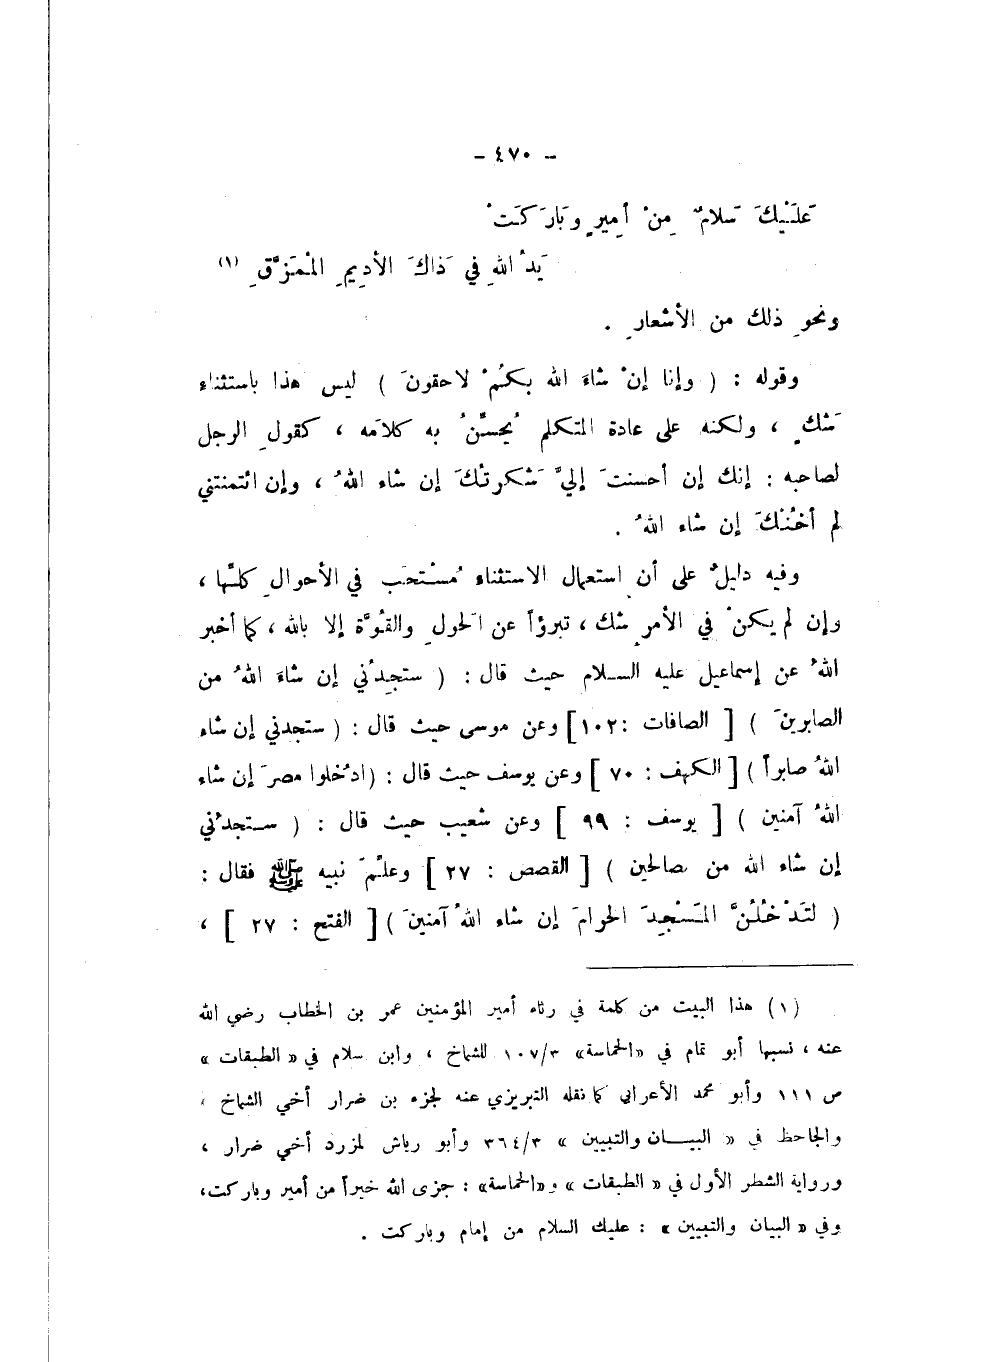 - ٤٧٠ -
عَلَيْكَ سَلامٌ مِنْ أميرٍ وبَارَكَتْ
يَدُ اللهِ في ذَاكَ الأديمِ المُمَزَّقِ (١)
ونحوِ ذلك من الأشعارِ .
وقوله : ( وإنا إنْ شاءَ الله بكُمْ لاحقونَ ) ليس هذا باستثناء
شَكٍ ، ولكنه على عادة المتكلم يُحسِّنُ به كلامَه ، كقولِ الرجل
لصاحبه : إنك إن أحسنتَ إليَّ شَكرتُكَ إن شاء اللهُ ، وإن ائتمنتني
لم أخُنْكَ إن شاء اللهُ .
وفيه دليلٌ على أن استعمال الاستثناء مُسْتحَب في الأحوالِ كلِّها ،
وإن لم يكنْ في الأمرِ شك ، تبرؤاً عن الحَولِ والقُوَّة إلا بالله ، كما أخبر
اللهُ عن إسماعيل عليه السلام حيث قال : ( ستجِدُني إن شاءَ اللهُ من
الصابرينَ ) [ الصافات : ١٠٢] وعن موسى حيث قال : ( ستجدني إن شاء
اللهُ صابراً ) [ الكهف : ٧٠ ] وعن يوسف حيث قال : (ادْخلوا مصرَ إن شاء
اللهُ آمنين ) [ يوسف : ٩٩ ] وعن شعيب حيث قال : ( ستجدُني
إن شاء الله من صالحين ) [ القصص : ٢٧ ] وعلَّمَ نبيه ﷺ فقال :
( لتَدْخُلُنَّ المَسْجِدَ الحرامَ إن شاء اللهُ آمنينَ ) [ الفتح : ٢٧ ] ،
(١) هذا البيت من كلمة في رثاء أمير المؤمنين عمر بن الخطاب رضي الله
عنه ، نسبها أبو تمام في «الحماسة» ١٠٧/٣ للشماخ ، وابن سلام في « الطبقات »
ص ١١١ وأبو محمد الأعرابي كما نقله التبريزي عنه لجزء بن ضرار أخي الشماخ ،
والجاحظ في « البيان والتبيين » ٣٦٤/٣ وأبو رياش لمزرد أخي ضرار ،
ورواية الشطر الأول في « الطبقات » و«الحماسة» : جزى الله خيراً من أمير وباركت،
وفي « البيان والتبيين » : عليك السلام من إمام وباركت .